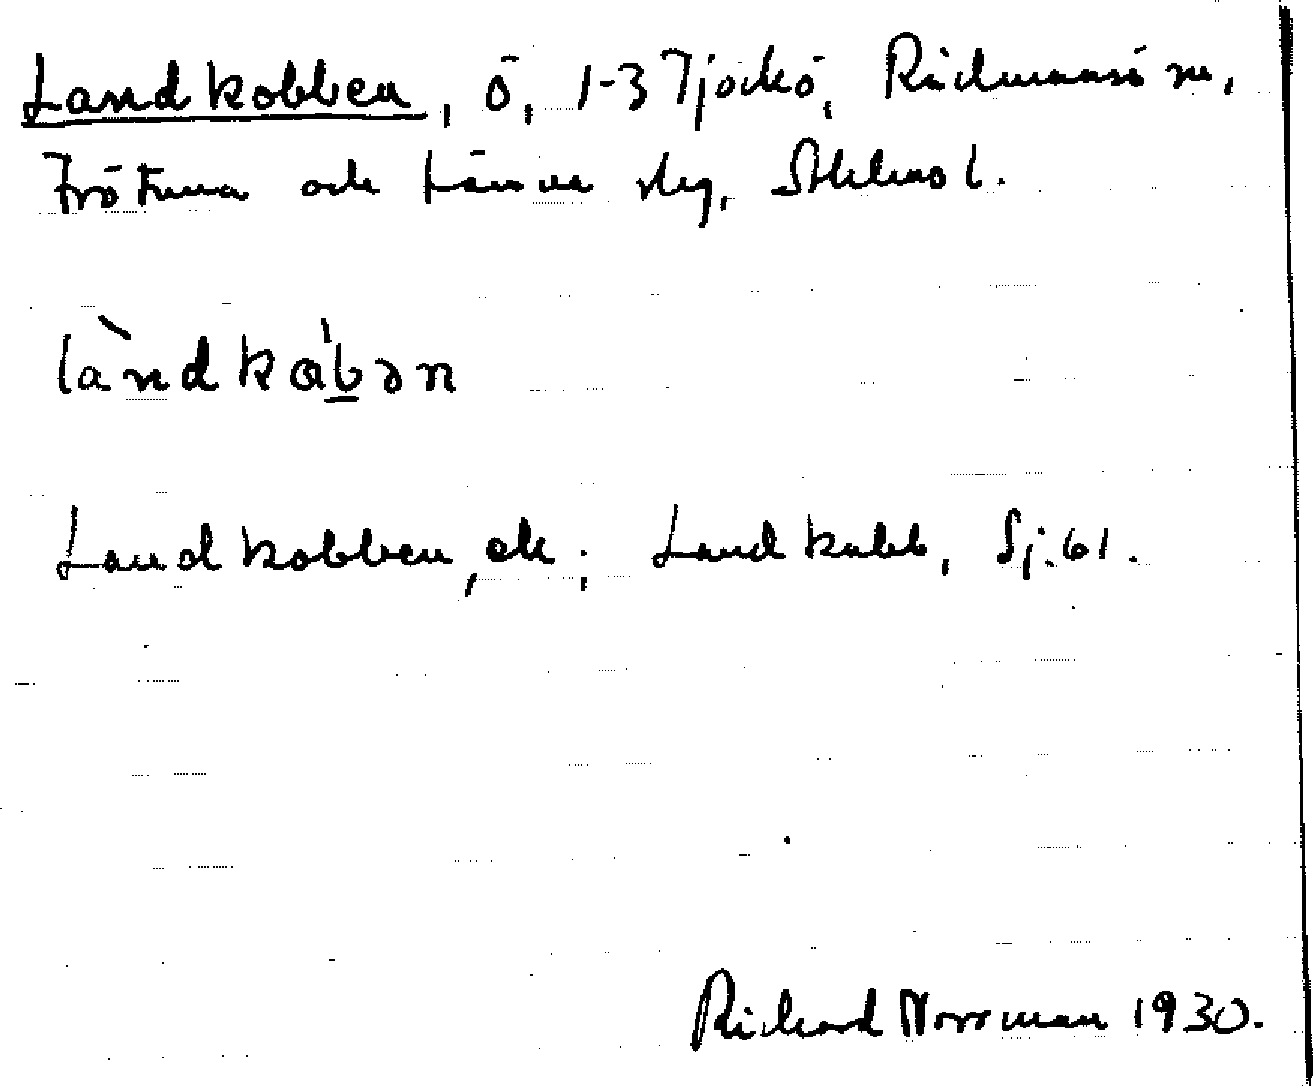 Landkobben, ö, 1-3 Tjockö, Rådmansö sn,
Frötuna och Länna slg, Sthlms l.
làndkɑ̀b̲ən
Landkobben, ek; Landkubb, Sj. 61.
Richard Norrman 1930.